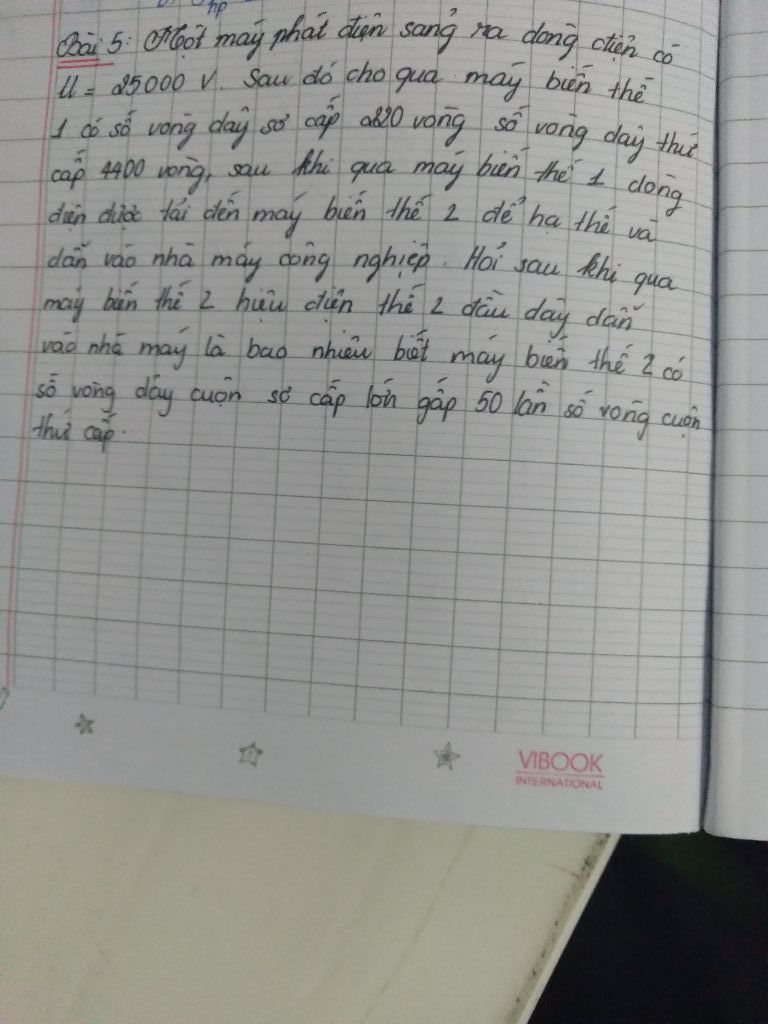 Bài 5: Một máy phát điện sảng ra dòng điện có
U = 25000 V. Sau đó cho qua máy biến thế
1 có số vòng dây sơ cấp 2220 vòng số vòng dây thứ
cấp 4400 vòng, sau khi qua máy biến thế 1 dòng
điện được tải đến máy biến thế 2 để hạ thế và
dẫn vào nhà máy công nghiệp. Hỏi sau khi qua
máy biến thế 2 hiệu điện thế 2 đầu dây dẫn
vào nhà máy là bao nhiêu biết máy biến thế 2 có
số vòng dây cuộn sơ cấp lớn gấp 50 lần số vòng cuộn
thứ cấp.
VIBOOK
INTERNATIONAL